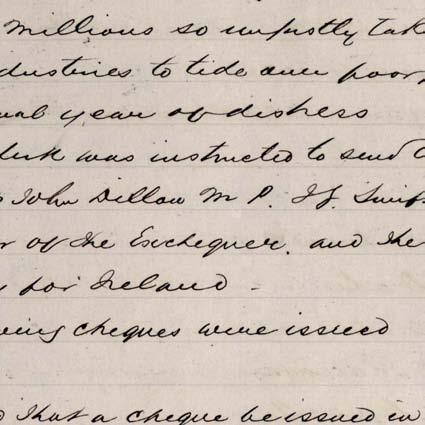 Millions so unjustly take
dustries to tide over poor
year of distress
was instructed to send
John Dillon M P. J J. Swif
of the Exchequer. and the
for Ireland -
wing cheques were issued
that a cheque be issued in